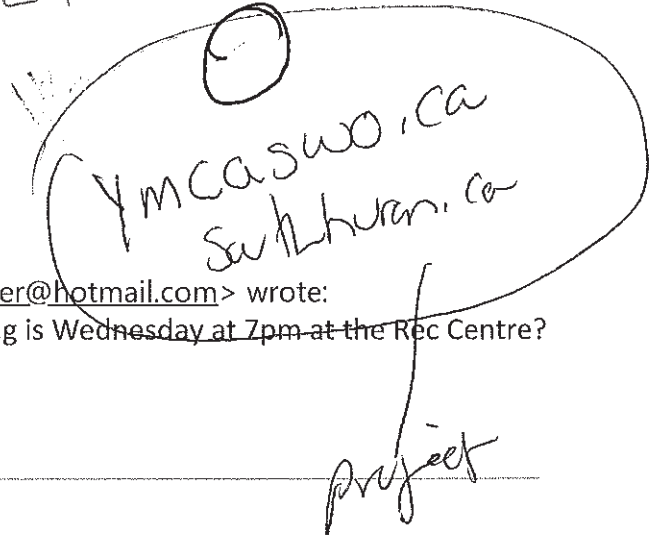 ymcaswo.ca
southhuron.ca
er@hotmail.com> wrote:
g is Wednesday at 7pm at the Rec Centre?
project